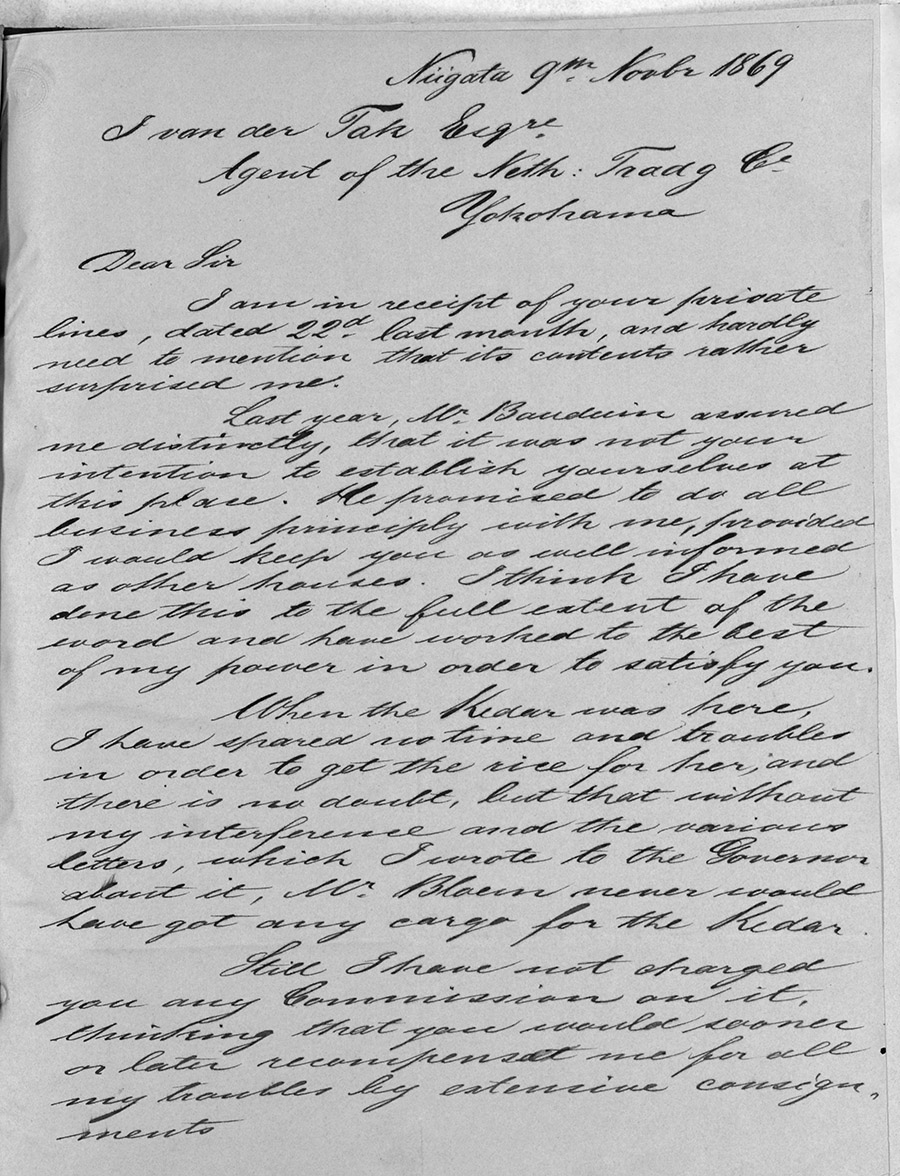 Niigata 9th. Novbr 1869
J van der Tak Esqre.
Agent of the Neth: Tradg Co.
Yokohama
Dear Sir
I am in receipt of your private
lines, dated 22d. last month, and hardly
need to mention that its contents rather
surprised me.
Last year, Mr. Bauduin assured
me distinctly, that it was not your
intention to establish yourselves at
this place. He promised to do all
business principly with me, provided
I would keep you as well informed
as other houses. I think I have
done this to the full extent of the
word and have worked to the best
of my power in order to satisfy you.
When the Kedar was here,
I have spared no time and troubles
in order to get the rice for her, and
there is no doubt, but that without
my interference and the various
letters, which I wrote to the Governor
about it, Mr. Bloem never would
have got any cargo for the Kedar.
Still I have not charged
you any Commission on it,
thinking that you would sooner
or later recompense me for all
my troubles by extensive consign-
ments